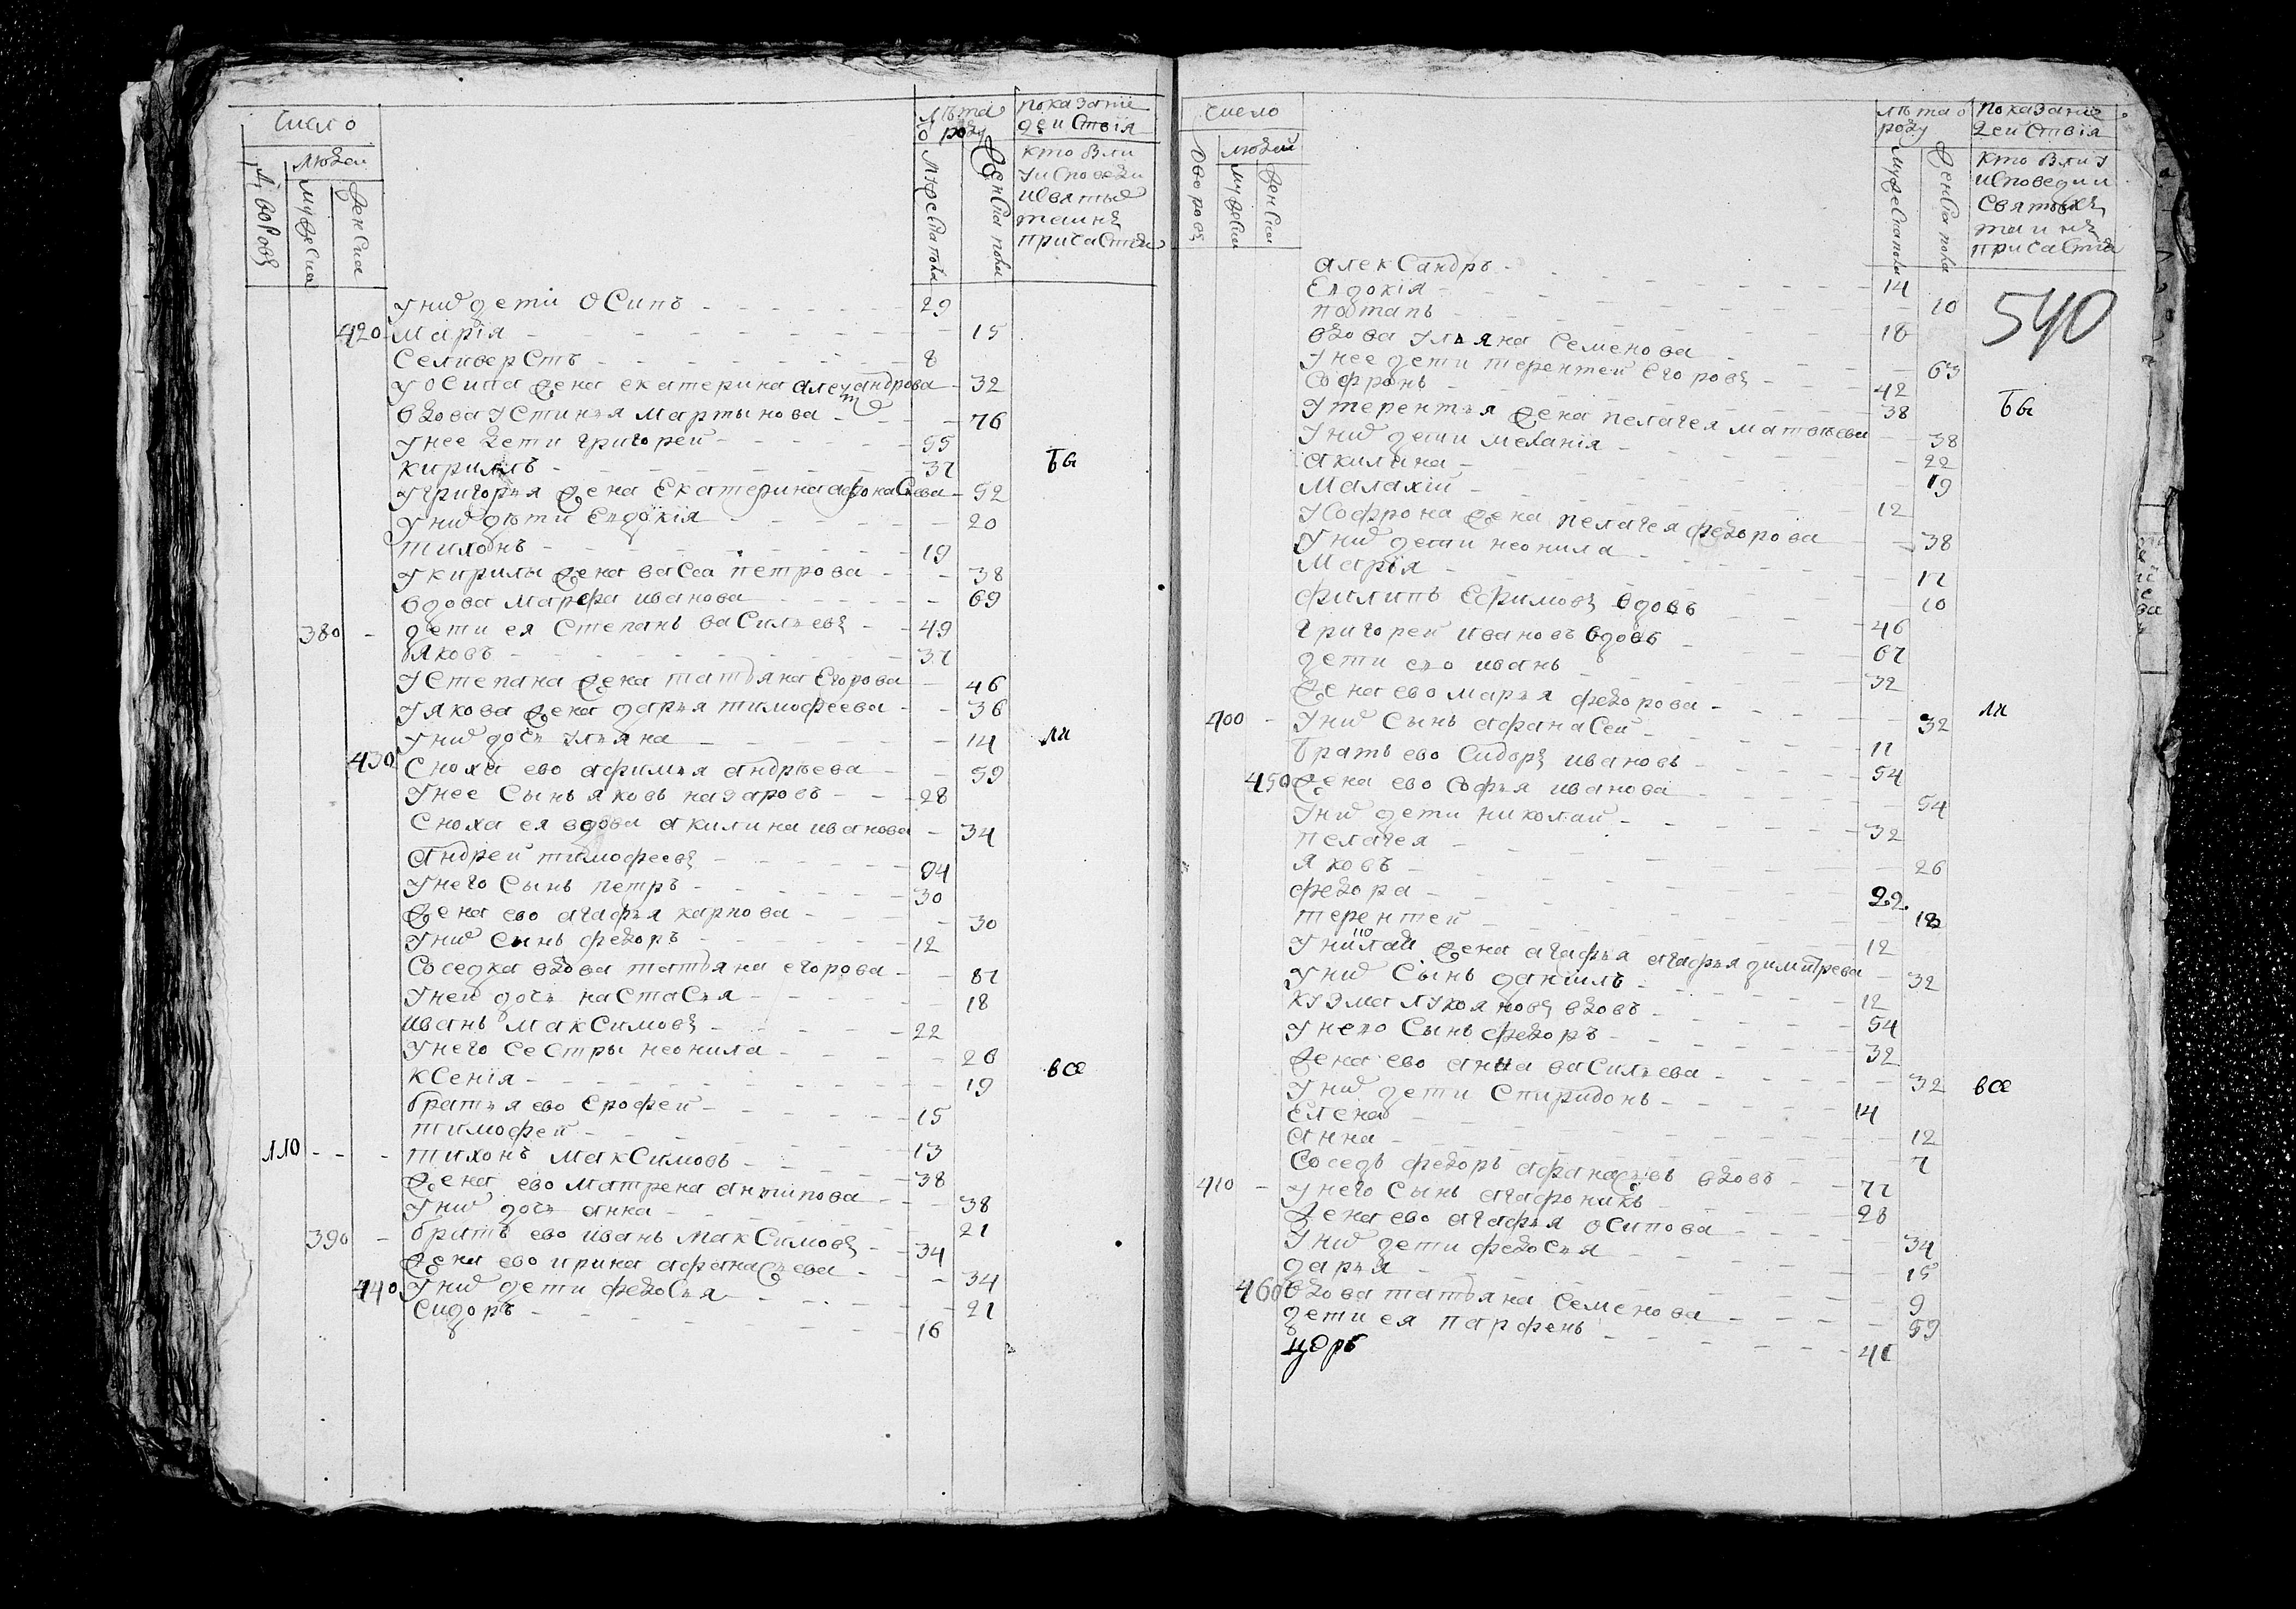 Число
Людей
Дворовъ
Мужеска
Женска
Лѣта
о роду
Мужеска пола
Женска пола
показание
действия
кто Были
у исповеди
исвятыхъ
таинъ
причастия
у них дети Осипъ 29
420 Мария 15
Селиверстъ 8
у Осипа жена екатерина александрова 32
вдова устинья Мартынова 76
у нее дети григореи 55
кирилъ 37
у григорья жена Екатерина афонасева 52
у них дѣти Евдокия 20
тихонъ 19
у кирилы жена васса петрова 38
вдова Марфа иванова 69
380 дети ея Степанъ васильевъ 49
яковъ 37
у Степана жена татьяна Егорова 46
у якова жена дарья тимофеева 36
у них дочь ульяна 14
430 Сноха ево афимья андрѣева 59
у нее Сынъ яковъ назаровъ 28
Сноха ея вдова акилина иванова 34
андреи тимофеевъ 94
у него Сынъ петръ 30
жена ево агафья карпова 30
у них Сынъ федоръ 12
Соседка вдова татьяна егорова 87
у неи дочь настасья 18
иванъ Максимовъ 22
у него сестры неонила 26
ксения 19
братья ево Ерофеи 15
тимофеи 13
110 тихонъ Максимовъ 38
жена ево матрена антипова 38
у них дочь анна 21
390 братъ ево иванъ Максимовъ 34
жена ево ирина афанасьева 34
440 у них дети федосья 21
Сидоръ 16
Бы
ли
все
Число
людей
Дворовъ
мужеска
женска
лѣта о
роду
мужеска пола
женска пола
показание
действия
кто Были у
исповеди и
святыхъ
таинъ
причастия
540
александръ 14
Евдокия 10
потапъ 18
вдова ульяна Семенова 63
у нее дети терентеи Егоровъ 42
Софронъ 38
у терентья жена пелагея матвѣева 38
у них дети мелания 22
акилина 19
Малахии 12
у Софрона жена пелагея федорова 38
у них дети неонила 17
Мария 10
филипъ Ефимовъ вдовъ 46
григореи ивановъ вдовъ 67
дети ево иванъ 32
жена ево марья федорова 32
400 у них Сынъ афанасеи 11
братъ ево Сидоръ ивановъ 54
450 жена ево Софья иванова 54
у них дети николаи 32
пелагея 26
яковъ 22
федора 18
терентеи 12
у николаи жена агафья агафья димитрева 32
у них Сынъ данилъ 12
кузма лукояновъ вдовъ 54
у нево Сынъ федоръ 32
жена ево анна васильева 32
у них дети Спиридонъ 14
Елена 12
анна 7
Соседъ федоръ афанасьевъ вдовъ 77
410 у него Сынъ агафоникъ 28
жена ево агафья осипова 34
у них дети федосья 15
дарья 9
460 вдова татьяна Семенова 59
дети ея парфенъ 41
Бы
ли
все